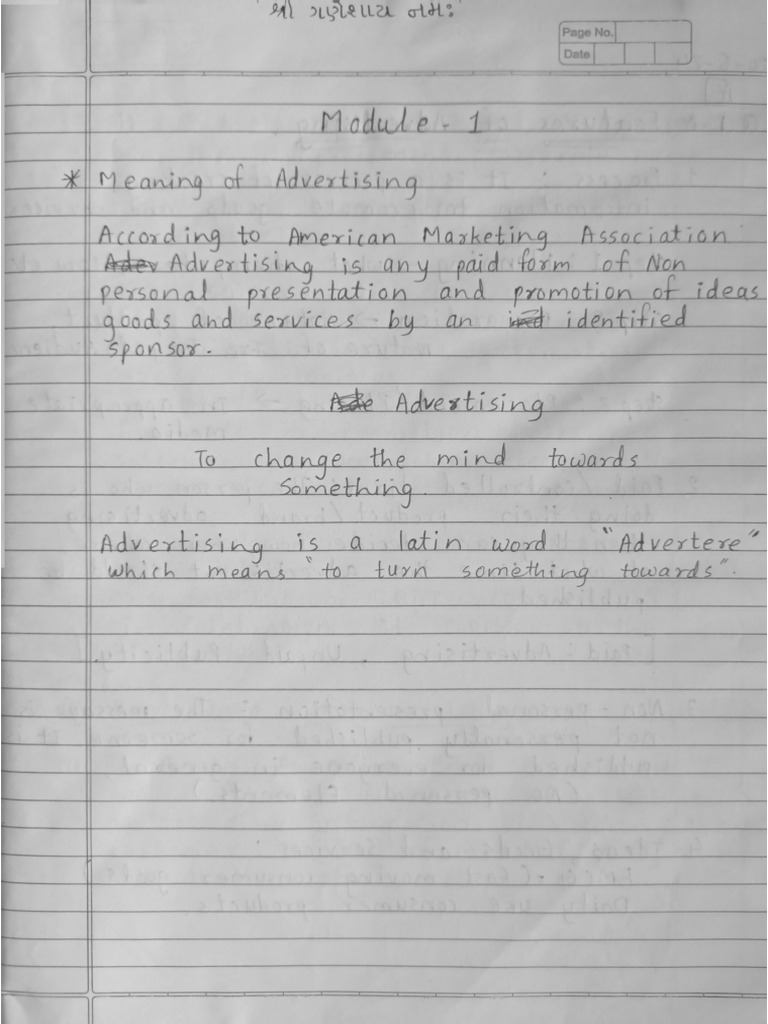 શ્રી ગણેશાય નમઃ
Page No.
Date
Module - 1
* Meaning of Advertising
According to American Marketing Association
Advertising is any paid form of Non
personal presentation and promotion of ideas
goods and services by an identified
sponsor.
Advertising
To change the mind towards
something.
Advertising is a latin word "Advertere"
which means "to turn something towards".